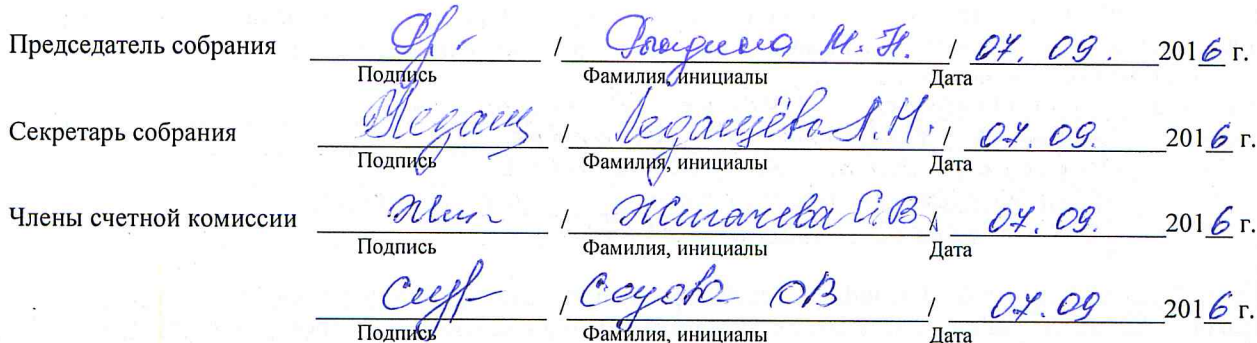 Председатель собрания / М. Н. / 07. 09. 2016 г.
Подпись Фамилия, инициалы Дата
Секретарь собрания Ледащ / Ледащёва Л. Н. / 07. 09. 2016 г.
Подпись Фамилия, инициалы Дата
Члены счетной комиссии / В. / 07. 09. 2016 г.
Подпись Фамилия, инициалы Дата
/ ОВ / 07. 09 2016 г.
Подпись Фамилия, инициалы Дата